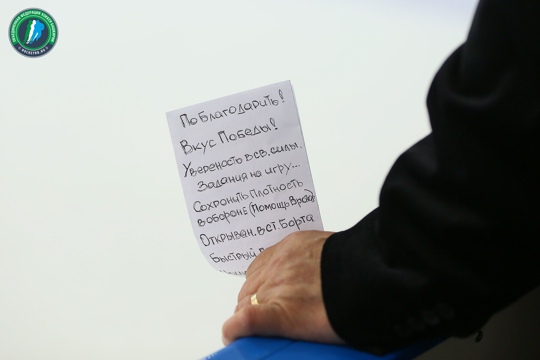 Поблагодарить!
Вкус Победы!
Увереность в св. силы.
Задания на игру...
Сохранить Плотность
в обороне (Помощь Врат)
Открыван. в ст. Борта
Быстрый